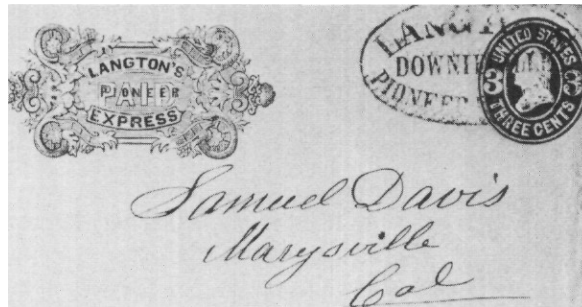 LANGTON'S
PIONEER
PAID
EXPRESS
LANGT
DOWNIEVILLE
PIONEER
UNITED STATES
3 3
THREE CENTS
Samuel Davis
Marysville
Cal